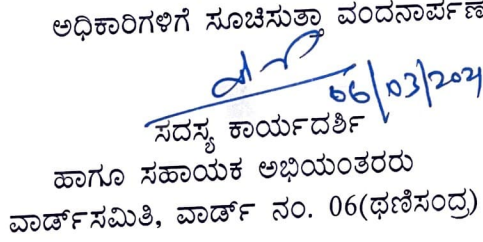 ಅಧಿಕಾರಿಗಳಿಗೆ ಸೂಚಿಸುತ್ತಾ ವಂದನಾರ್ಪಣೆ
06/03/2021
ಸದಸ್ಯ ಕಾರ್ಯದರ್ಶಿ
ಹಾಗೂ ಸಹಾಯಕ ಅಭಿಯಂತರರು
ವಾರ್ಡ್‌ಸಮಿತಿ, ವಾರ್ಡ್ ನಂ. 06(ಥಣಿಸಂದ್ರ)